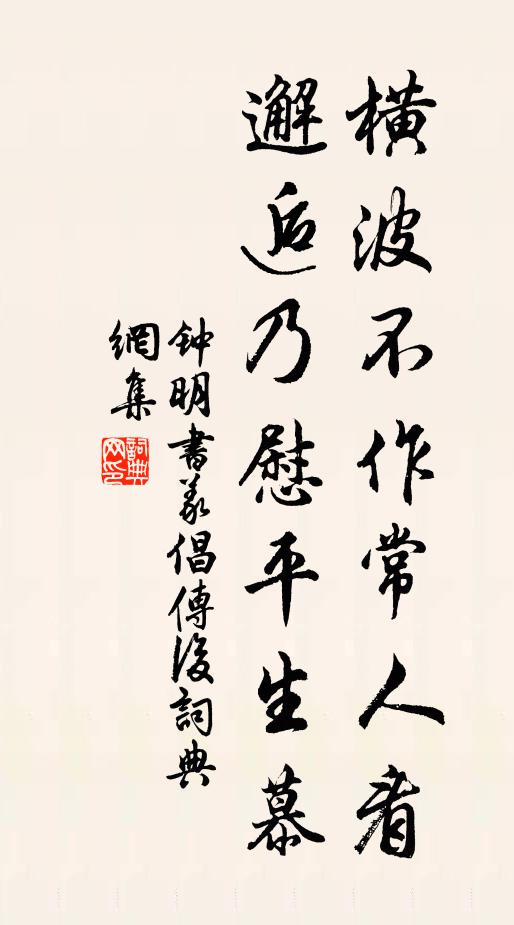 橫波不作常人看
邂逅乃慰平生慕
钟明書義倡傳後詞典
網集
詞典
網印